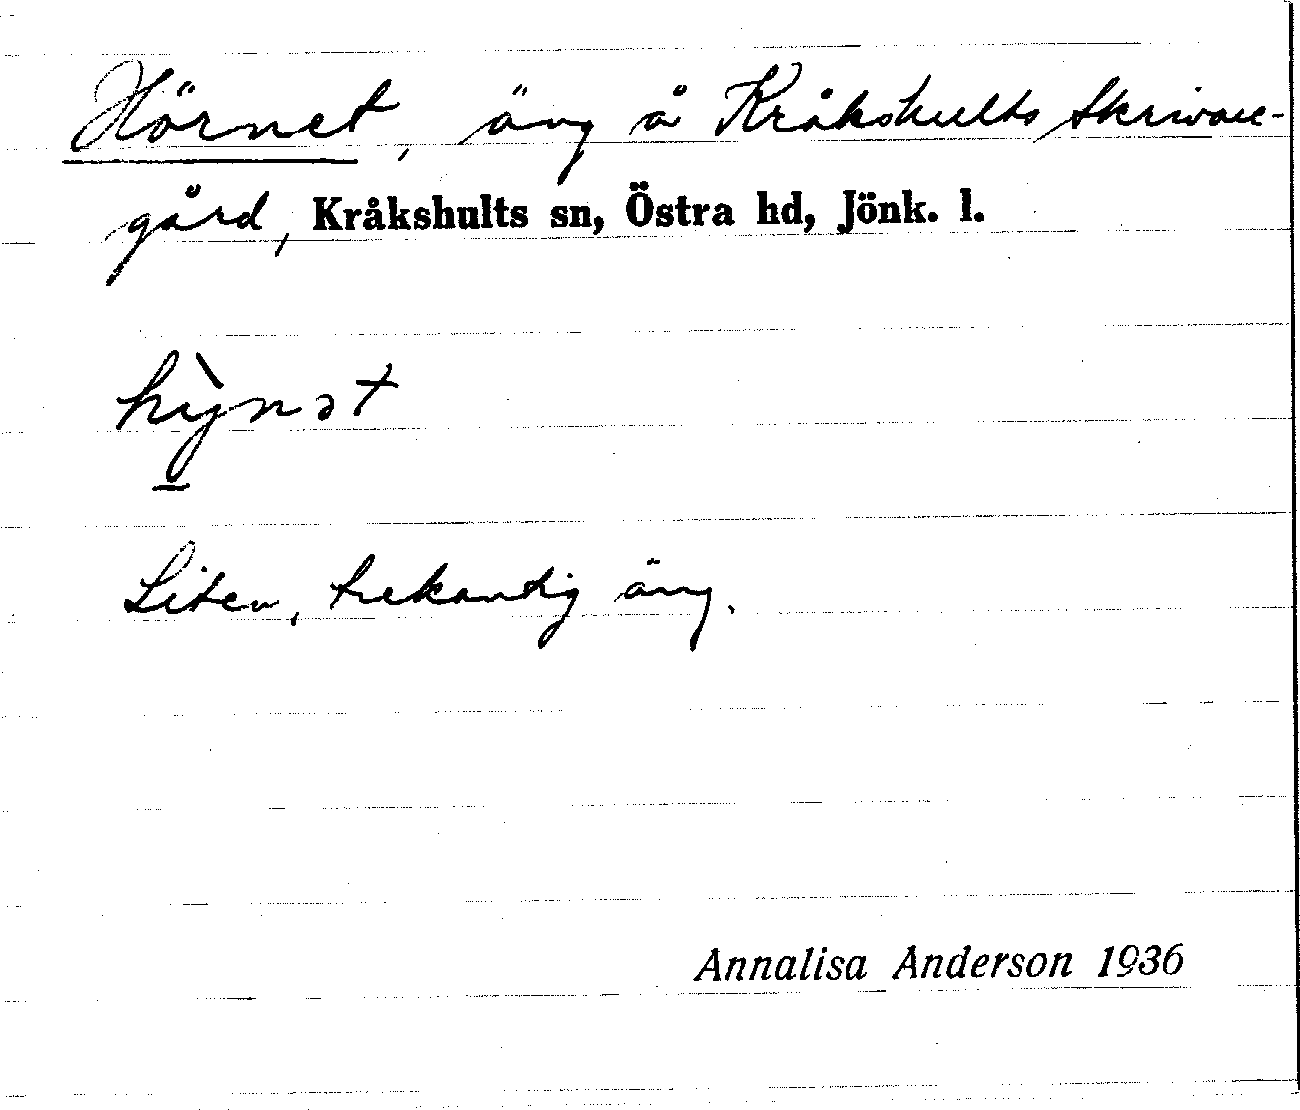 Hörnet, äng å Kråkshults Skrivare-
gård, Kråkshults sn, Östra hd, Jönk. l.
hỳnət
Liten, trekantig äng.
Annalisa Anderson 1936